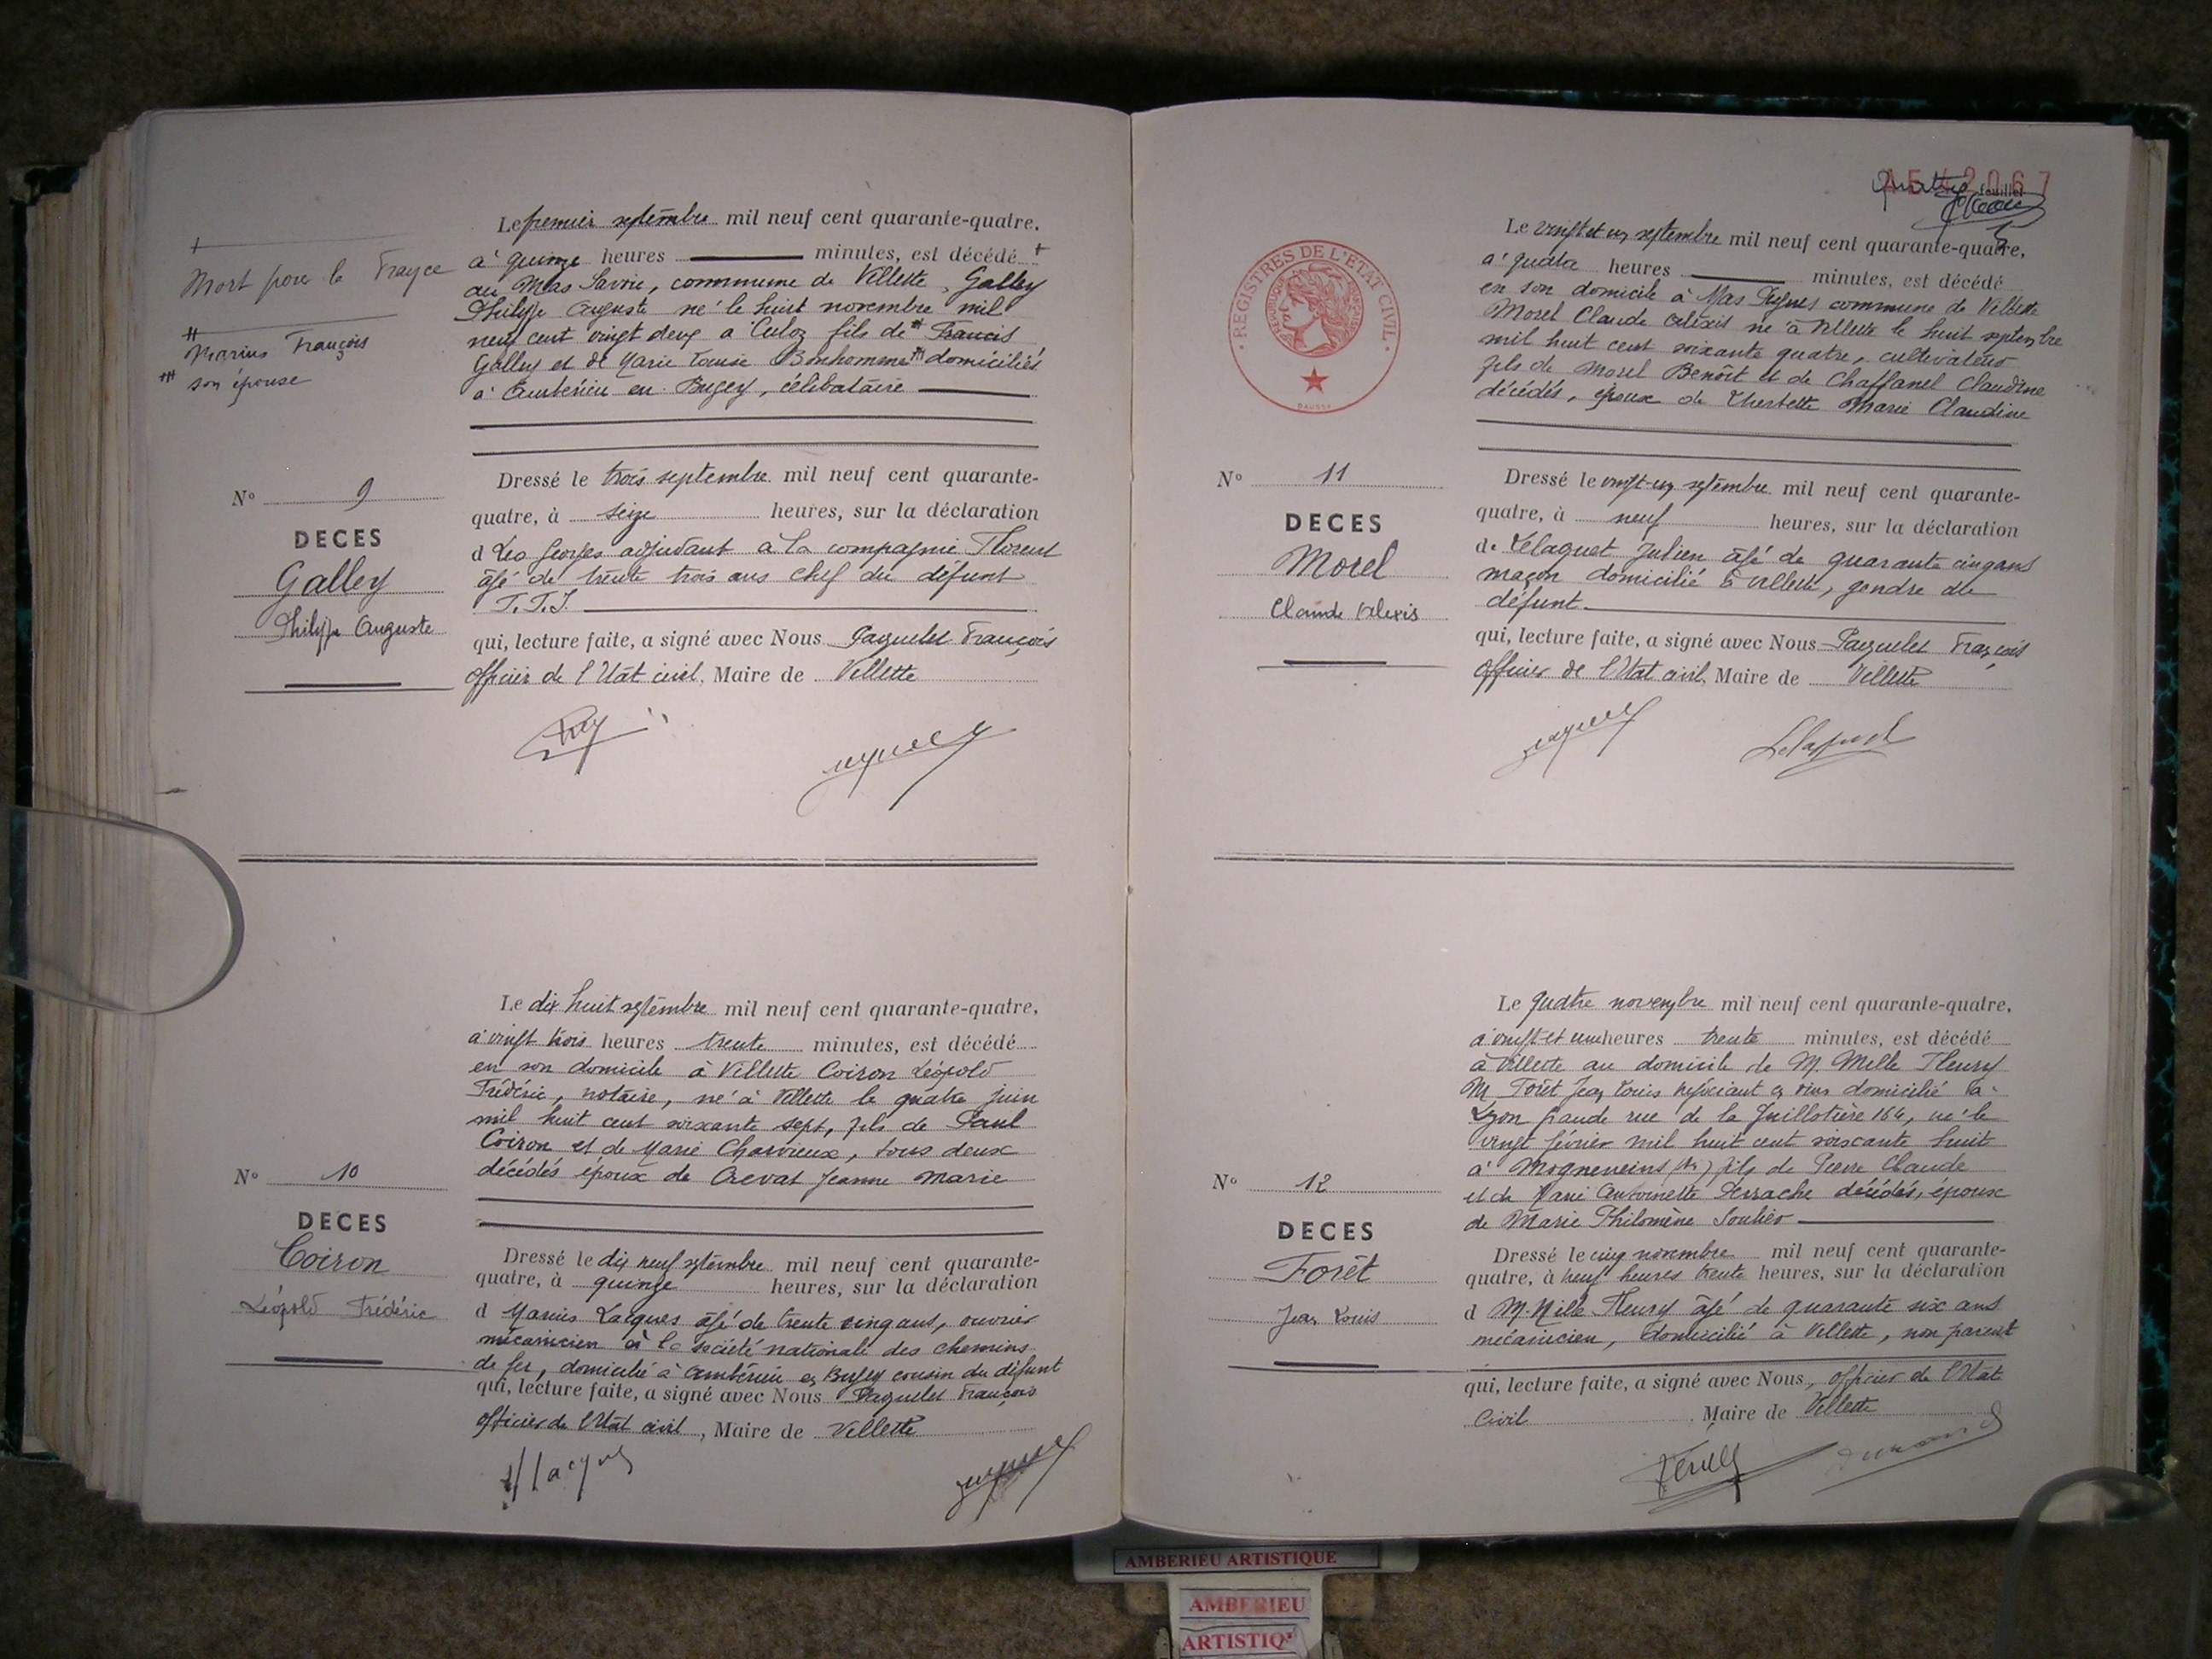 +
Mort pour la France
++
Marius François
+++ son épouse
Le premier septembre mil neuf cent quarante-quatre,
à quinze heures minutes, est décédé +
au Mas Savoie, commune de Villette, Galley
Philippe Auguste né le huit novembre mil
neuf cent vingt deux à Culoz fils de ++ Francis
Galley et de Marie Louise Bonhomme +++ domiciliés
à Ambérieu en Bugey, célibataire
N° 9
DECES
Galley
Philippe Auguste
Dressé le trois septembre mil neuf cent quarante-
quatre, à seize heures, sur la déclaration
d Léo Georges adjudant à la compagnie Florent
âgé de trente trois ans chef du défunt
qui, lecture faite, a signé avec Nous Paquelet François
officier de l'Etat civil, Maire de Villette
Le dix huit septembre mil neuf cent quarante-quatre,
à vingt trois heures trente minutes, est décédé
en son domicile à Villette Coiron Léopold
Frédéric, notaire, né à Villette le quatre juin
mil huit cent soixante sept, fils de Paul
Coiron et de Marie Charvieux, tous deux
décédés époux de Crevat Jeanne Marie
N° 10
DECES
Coiron
Léopold Frédéric
Dressé le dix neuf septembre mil neuf cent quarante-
quatre, à quinze heures, sur la déclaration
d Marius Lacques âgé de trente cinq ans, ouvrier
mécanicien à la société nationale des chemins
de fer, domicilié à Ambérieu en Bugey cousin du défunt
qui, lecture faite, a signé avec Nous Paquelet François
officier de l'Etat civil, Maire de Villette
feuillet
REGISTRES DE L'ETAT CIVIL
Le vingt et un septembre mil neuf cent quarante-quatre,
à quatre heures minutes, est décédé
en son domicile à Mas Pugues commune de Villette
Morel Claude Alexis né à Villette le huit septembre
mil huit cent soixante quatre, cultivateur
fils de Morel Benoît et de Chaffanel Claudine
décédés, époux de Cherbette Marie Claudine
N° 11
DECES
Morel
Claude Alexis
Dressé le vingt-un septembre mil neuf cent quarante-
quatre, à neuf heures, sur la déclaration
de Lelaquet Julien âgé de quarante cinq ans
maçon domicilié à Villette, gendre du
défunt
qui, lecture faite, a signé avec Nous Paquelet François
officier de l'Etat civil, Maire de Villette
Le quatre novembre mil neuf cent quarante-quatre,
à vingt et une heures trente minutes, est décédé
à Villette au domicile de M. Mille Fleury
M. Forêt Jean Louis négociant en vins domicilié à
Lyon grande rue de la Guillotière 164, né le
vingt février mil huit cent soixante huit
à Mogneneins (Ain) fils de Pierre Claude
et de Marie Antoinette Perrache décédés, époux
de Marie Philomène Soulier
N° 12
DECES
Forêt
Jean Louis
Dressé le cinq novembre mil neuf cent quarante-
quatre, à neuf heures trente heures, sur la déclaration
d M. Mille Fleury âgé de quarante six ans
mécanicien, domicilié à Villette, non parent
qui, lecture faite, a signé avec Nous, officier de l'Etat
Civil Maire de Villette
AMBERIEU ARTISTIQUE
AMBERIEU
ARTISTIQ